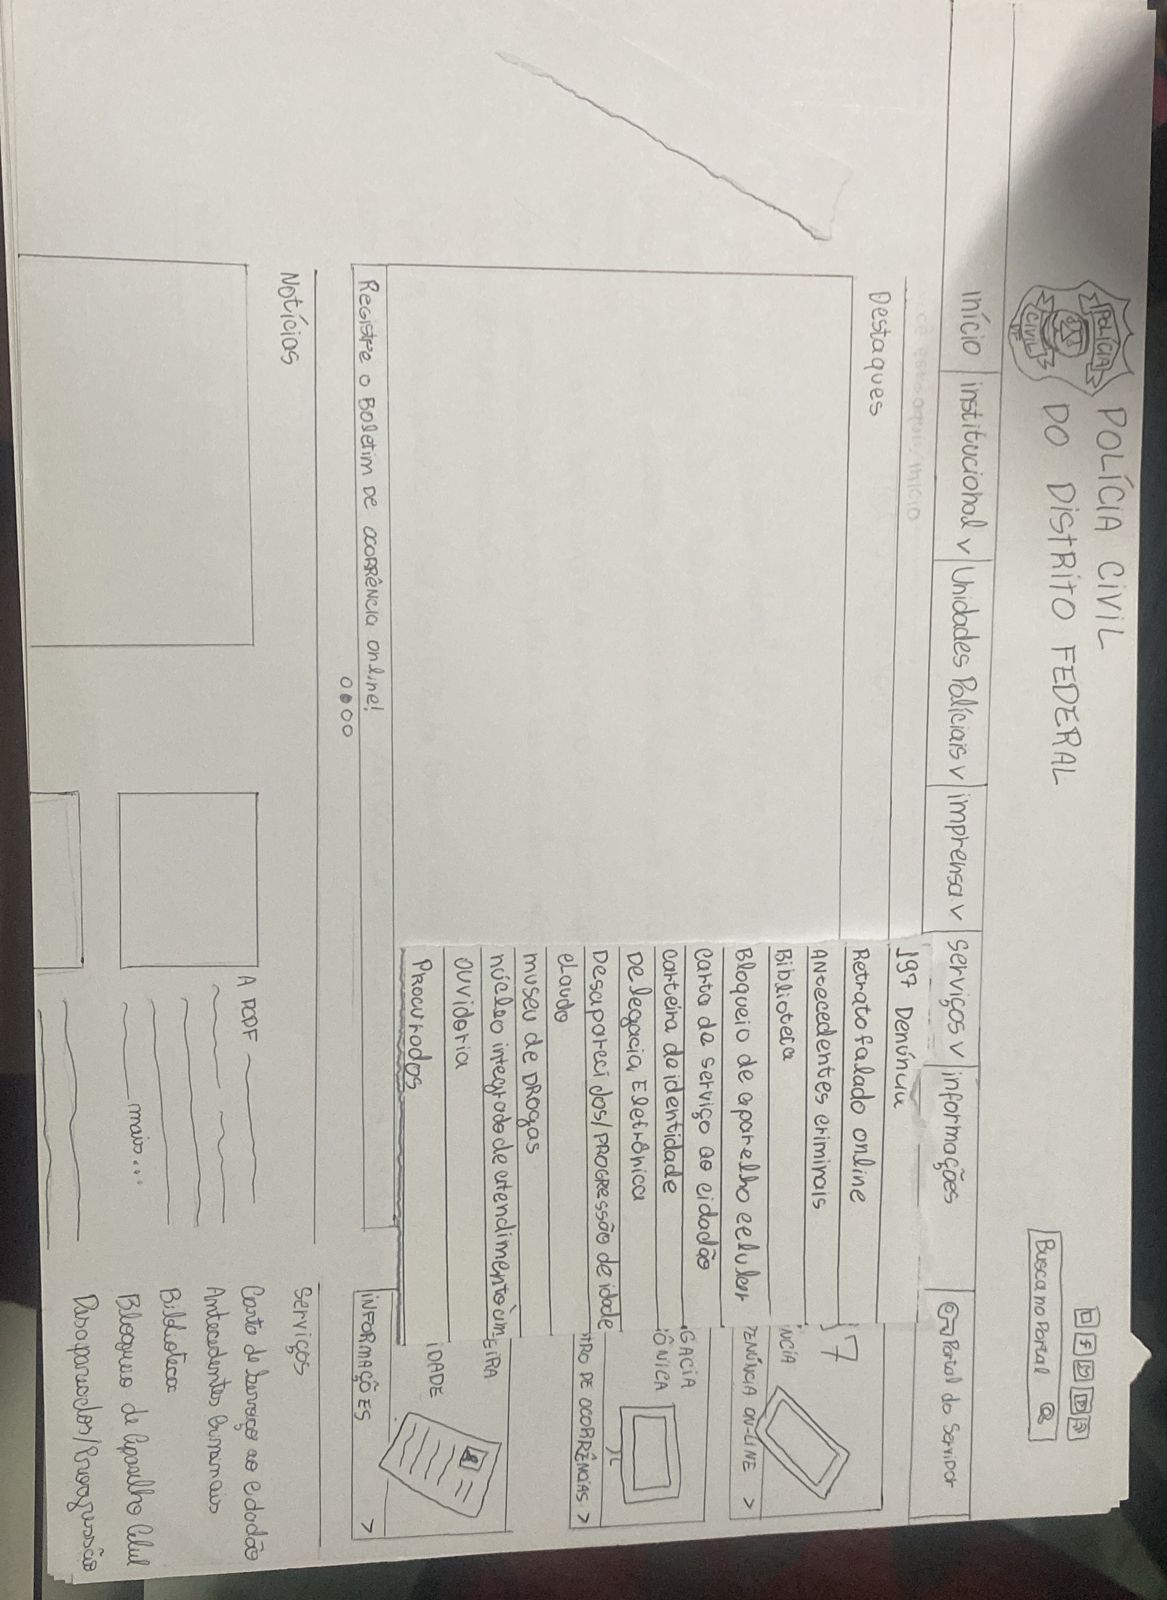 POLÍCIA
CIVIL
DF
POLÍCIA CIVIL
DO DISTRITO FEDERAL
Busca no Portal
início
institucional v
Unidades Políciais v
imprensa v
serviços v
informações
Portal do Servidor
cê está aqui/início
Destaques
197 Denúncia
Retrato falado online
Antecedentes criminais
Biblioteca
Bloqueio de aparelho celular
carta de serviço ao cidadão
carteira de identidade
Delegacia Eletrônica
Desaparecidos/PROGRessão de idade
eLaudo
museu de DRogas
núcleo integrado de atendimento à m
ouvidoria
PRocurados
7
NCIA
DENÚNCIA ON-LINE >
GACIA
ÔNICA
TRO DE OCORRÊNCIAS >
EIRA
IDADE
INFORMAÇÕES >
Registre o Boletim de ocorrência online!
Notícias
A PCDF
mais...
Serviços
Carta de Serviço ao cidadão
Antecedentes Criminais
Biblioteca
Bloqueio de Aparelho Celul
Desaparecidos/Progressão